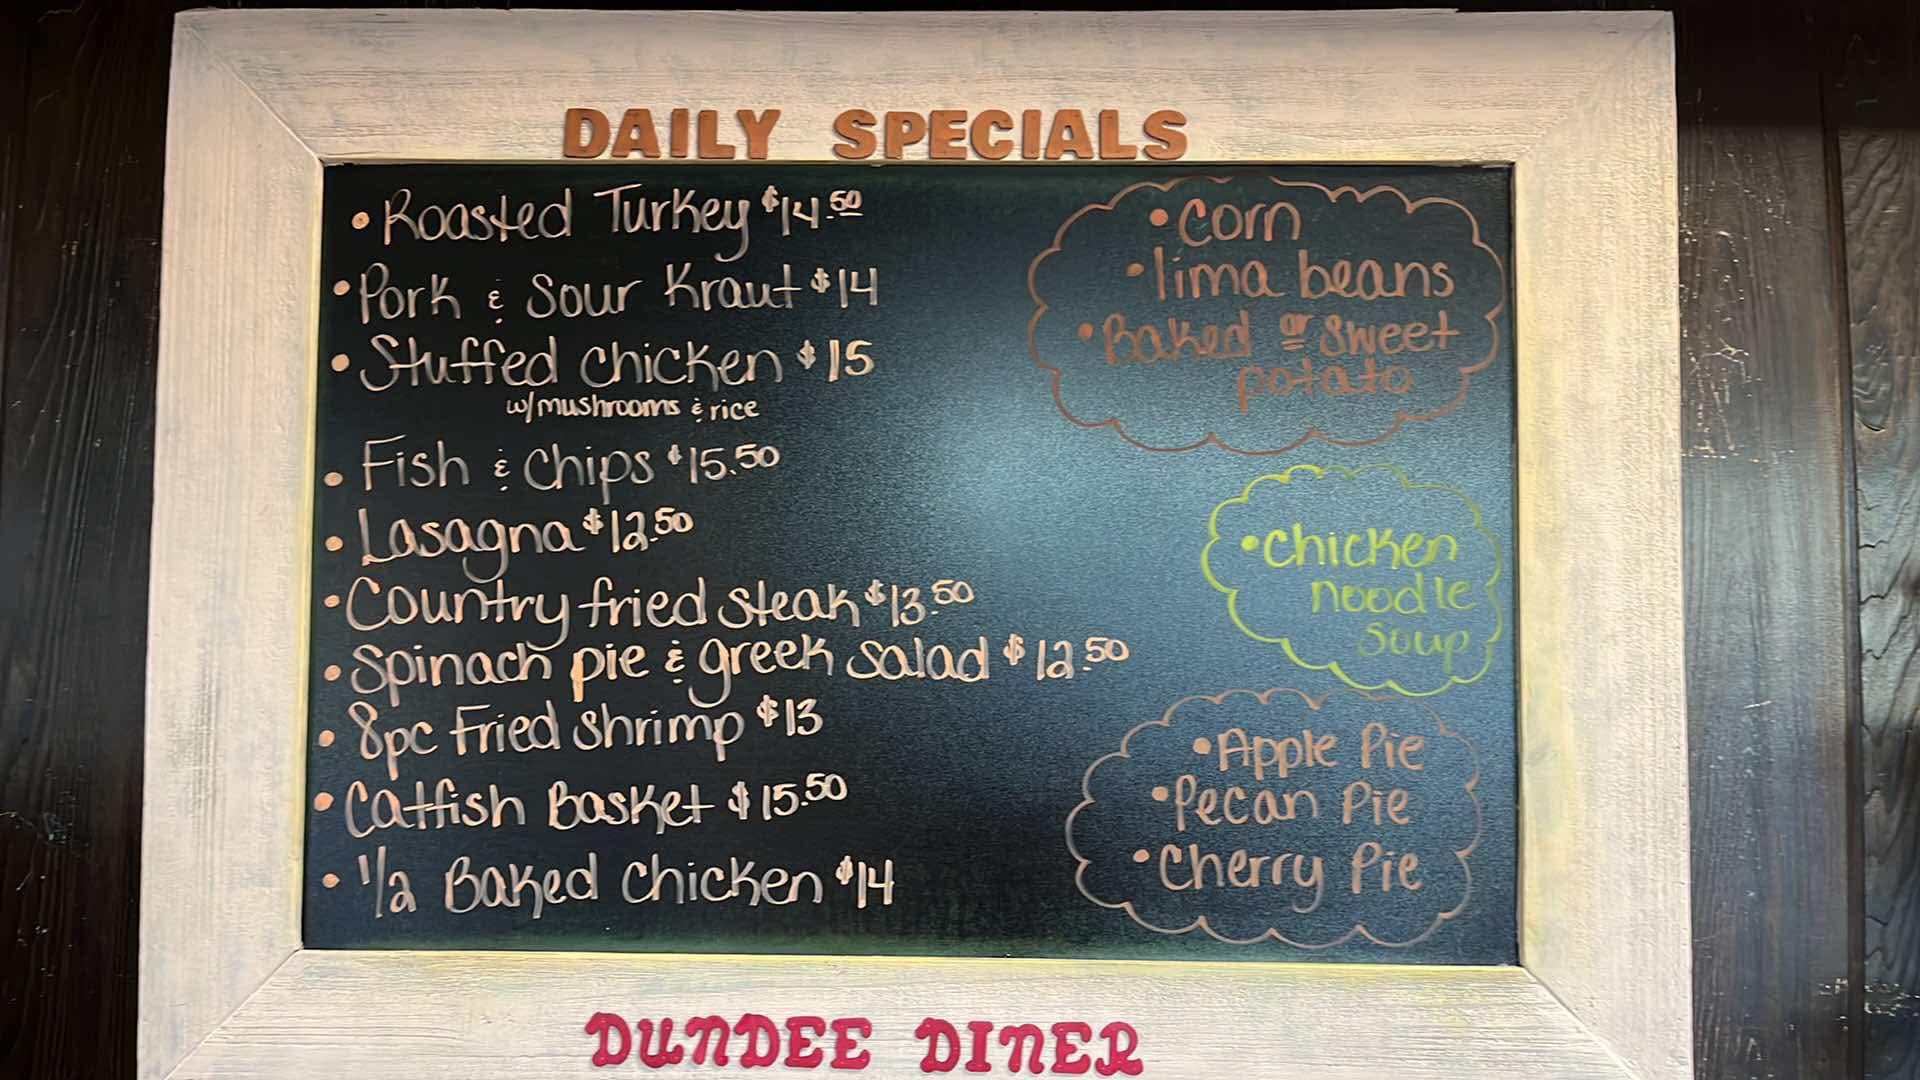 DAILY SPECIALS
• Roasted Turkey $14.50
• Pork & Sour Kraut $14
• Stuffed chicken $15
w/mushrooms & rice
• Fish & Chips $15.50
• Lasagna $12.50
• Country fried steak $13.50
• Spinach pie & greek salad $12.50
• 8pc Fried Shrimp $13
• Catfish Basket $15.50
• 1/2 Baked chicken $14
• Corn
• lima beans
• Baked or Sweet
potato
• Chicken
noodle
soup
• Apple Pie
• Pecan Pie
• Cherry Pie
DUNDEE DINER